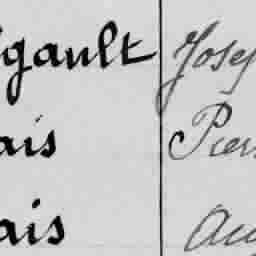 gault Josep
ais Pierr
ais Aug